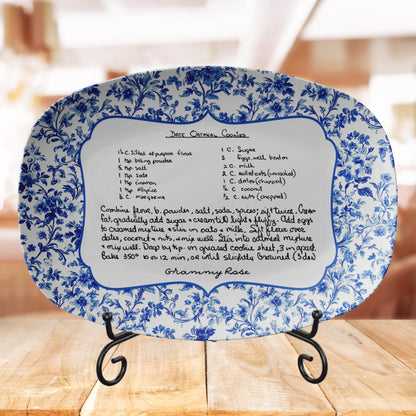 Date Oatmeal Cookies
1½ C. Sifted all purpose flour
1 tsp. baking powder
1 tsp. salt
1 tsp. soda
1 tsp. cinnamon
1 tsp. allspice
¾ C. margarine
1 C. Sugar
3 Eggs, well beaten
C. milk
2 C. rolled oats (uncooked)
1 C. dates (chopped)
½ C. coconut
½ C. nuts (chopped)
Combine flour, b. powder, salt, soda, spices; sift twice. Cream
fat, gradually add sugar & cream til light & fluffy. Add eggs
to creamed mixture & stir in oats & milk. Sift flour over
dates, coconut & nuts, & mix well. Stir into oatmeal mixture
& mix well. Drop by tsp. on greased cookie sheet, 3 in apart
Bake 350° 10 to 12 min, or until slightly browned (3 doz)
Grammy Rose